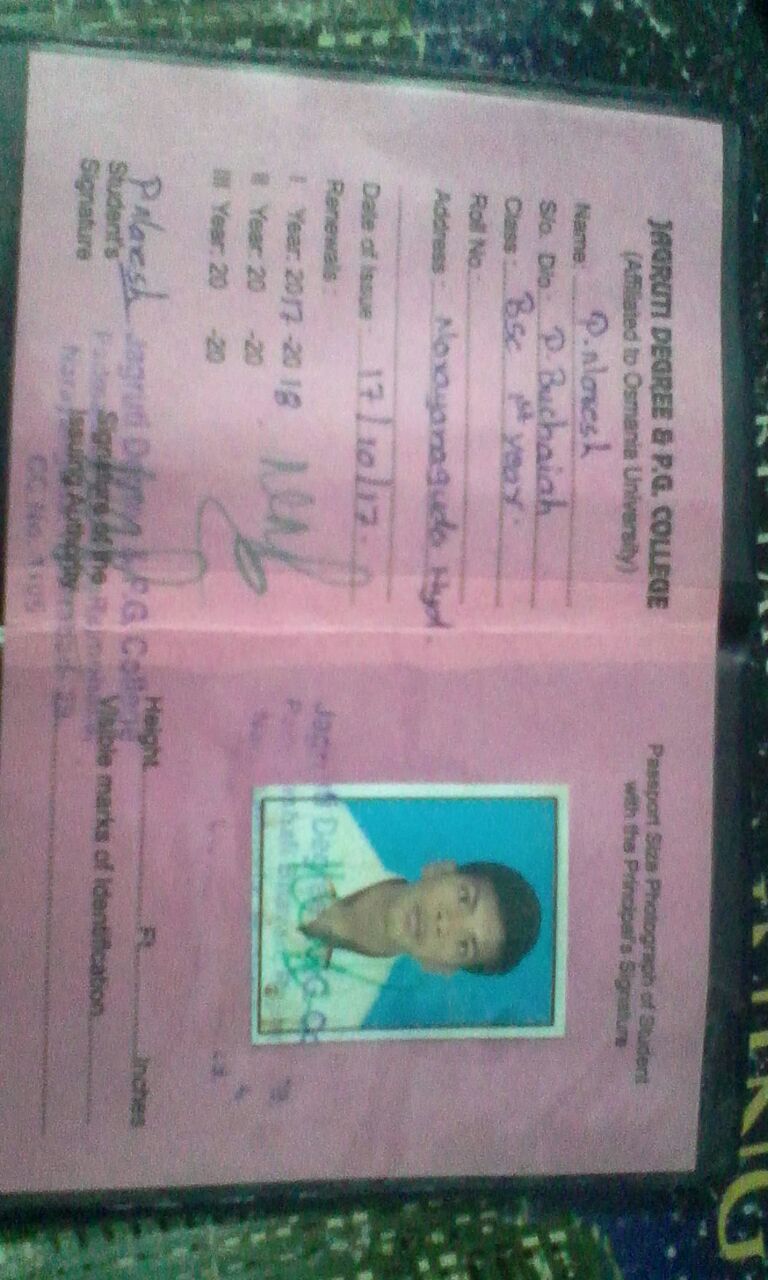 JAGRUTI DEGREE & P.G. COLLEGE
(Affiliated to Osmania University)
Name: P. Naresh
S/o. D/o.: P. Buchaiah
Class: Bsc 1st year.
Roll No.:
Address: Narayanaguda Hyd.
Date of Issue: 17/10/17.
Renewals:
I Year: 2017 -2018
II Year: 20 -20
III Year: 20 -20
P. Naresh
Student's
Signature
Signature of the
Issuing Authority
Jagruti Degree & P.G. College
Passport Size Photograph of Student
with the Principal's Signature
Height Ft. Inches
Visible marks of Identification